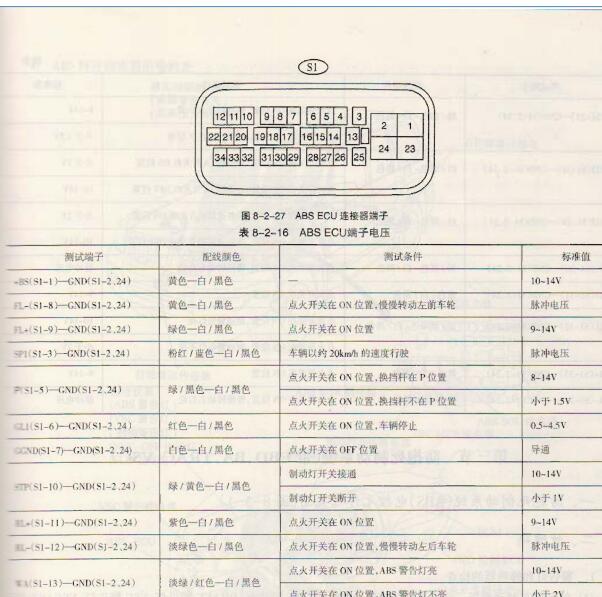 S1
12 11 10 9 8 7 6 5 4 3 2 1
22 21 20 19 18 17 16 15 14 13 24 23
34 33 32 31 30 29 28 27 26 25
图 8-2-27 ABS ECU 连接器端子
表 8-2-16 ABS ECU端子电压
测试端子 配线颜色 测试条件 标准值
+BS(S1-1)—GND(S1-2,24) 黄色—白/黑色 — 10~14V
FL-(S1-8)—GND(S1-2,24) 黄色—白/黑色 点火开关在 ON 位置,慢慢转动左前车轮 脉冲电压
FL+(S1-9)—GND(S1-2,24) 绿色—白/黑色 点火开关在 ON 位置 9~14V
SP1(S1-3)—GND(S1-2,24) 粉红/蓝色—白/黑色 车辆以约 20km/h 的速度行驶 脉冲电压
P(S1-5)—GND(S1-2,24) 绿/黑色—白/黑色 点火开关在 ON 位置,换挡杆在 P 位置 8~14V
点火开关在 ON 位置,换挡杆不在 P 位置 小于 1.5V
GL1(S1-6)—GND(S1-2,24) 红色—白/黑色 点火开关在 ON 位置,车辆停止 0.5~4.5V
GGND(S1-7)—GND(S1-2,24) 白色—白/黑色 点火开关在 OFF 位置 导通
STP(S1-10)—GND(S1-2,24) 绿/黄色—白/黑色 制动灯开关接通 10~14V
制动灯开关断开 小于 1V
RL+(S1-11)—GND(S1-2,24) 紫色—白/黑色 点火开关在 ON 位置 9~14V
RL-(S1-12)—GND(S1-2,24) 淡绿色—白/黑色 点火开关在 ON 位置,慢慢转动左后车轮 脉冲电压
WA(S1-13)—GND(S1-2,24) 淡绿/红色—白/黑色 点火开关在 ON 位置,ABS 警告灯亮 10~14V
点火开关在 ON 位置,ABS 警告灯不亮 小于 2V